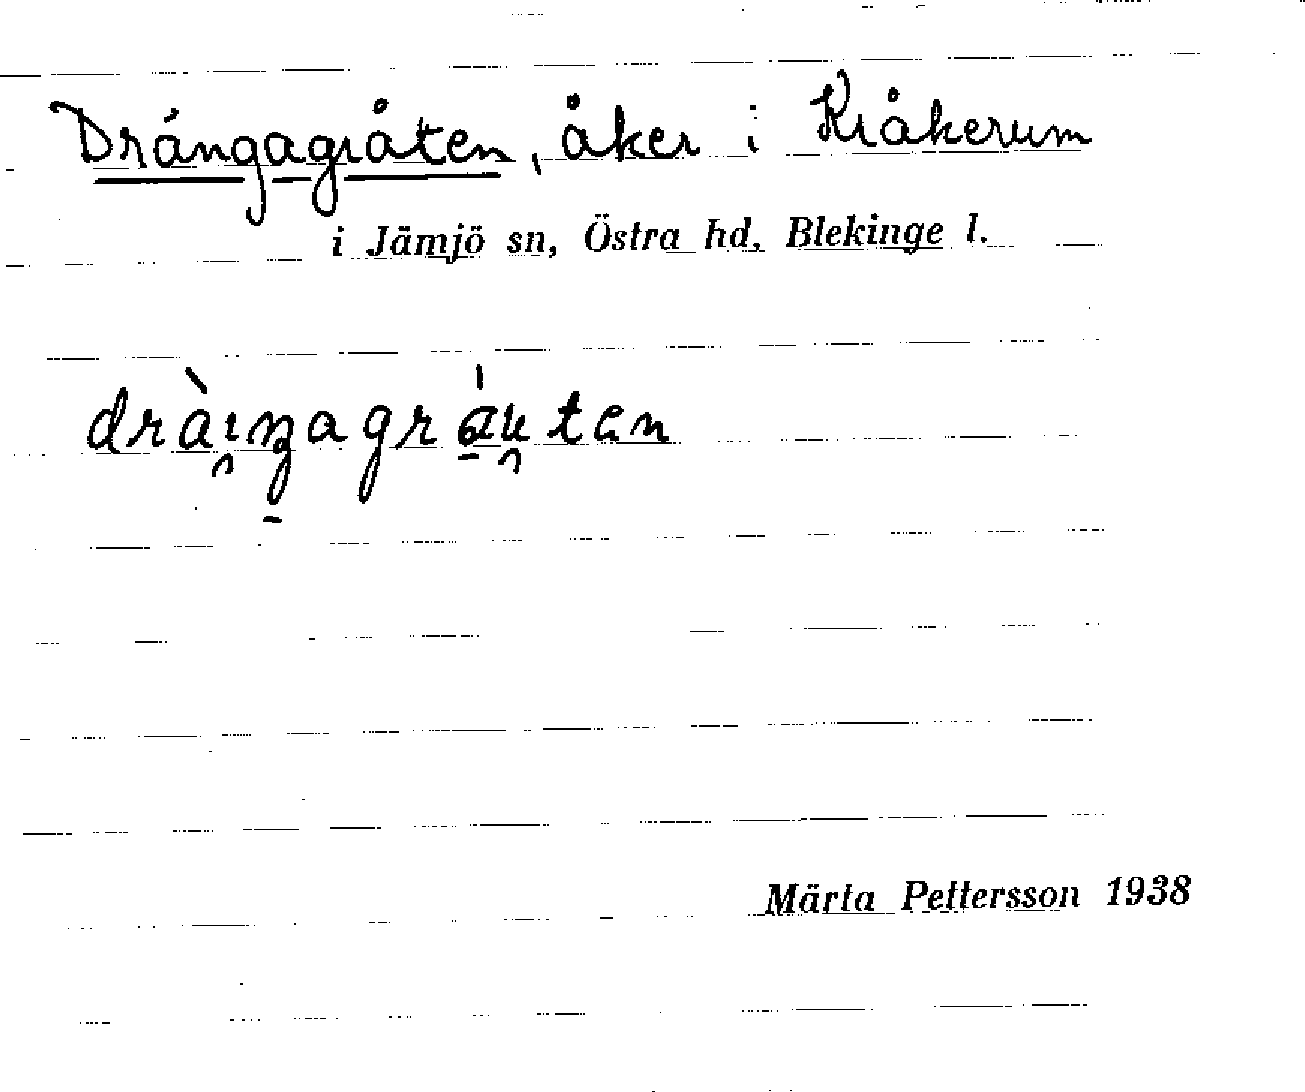 Drängagråten, åker i Kråkerum
i Jämjö sn, Östra hd, Blekinge l.
dràı̯ŋagrá̱u̯tən
Märta Pettersson 1938